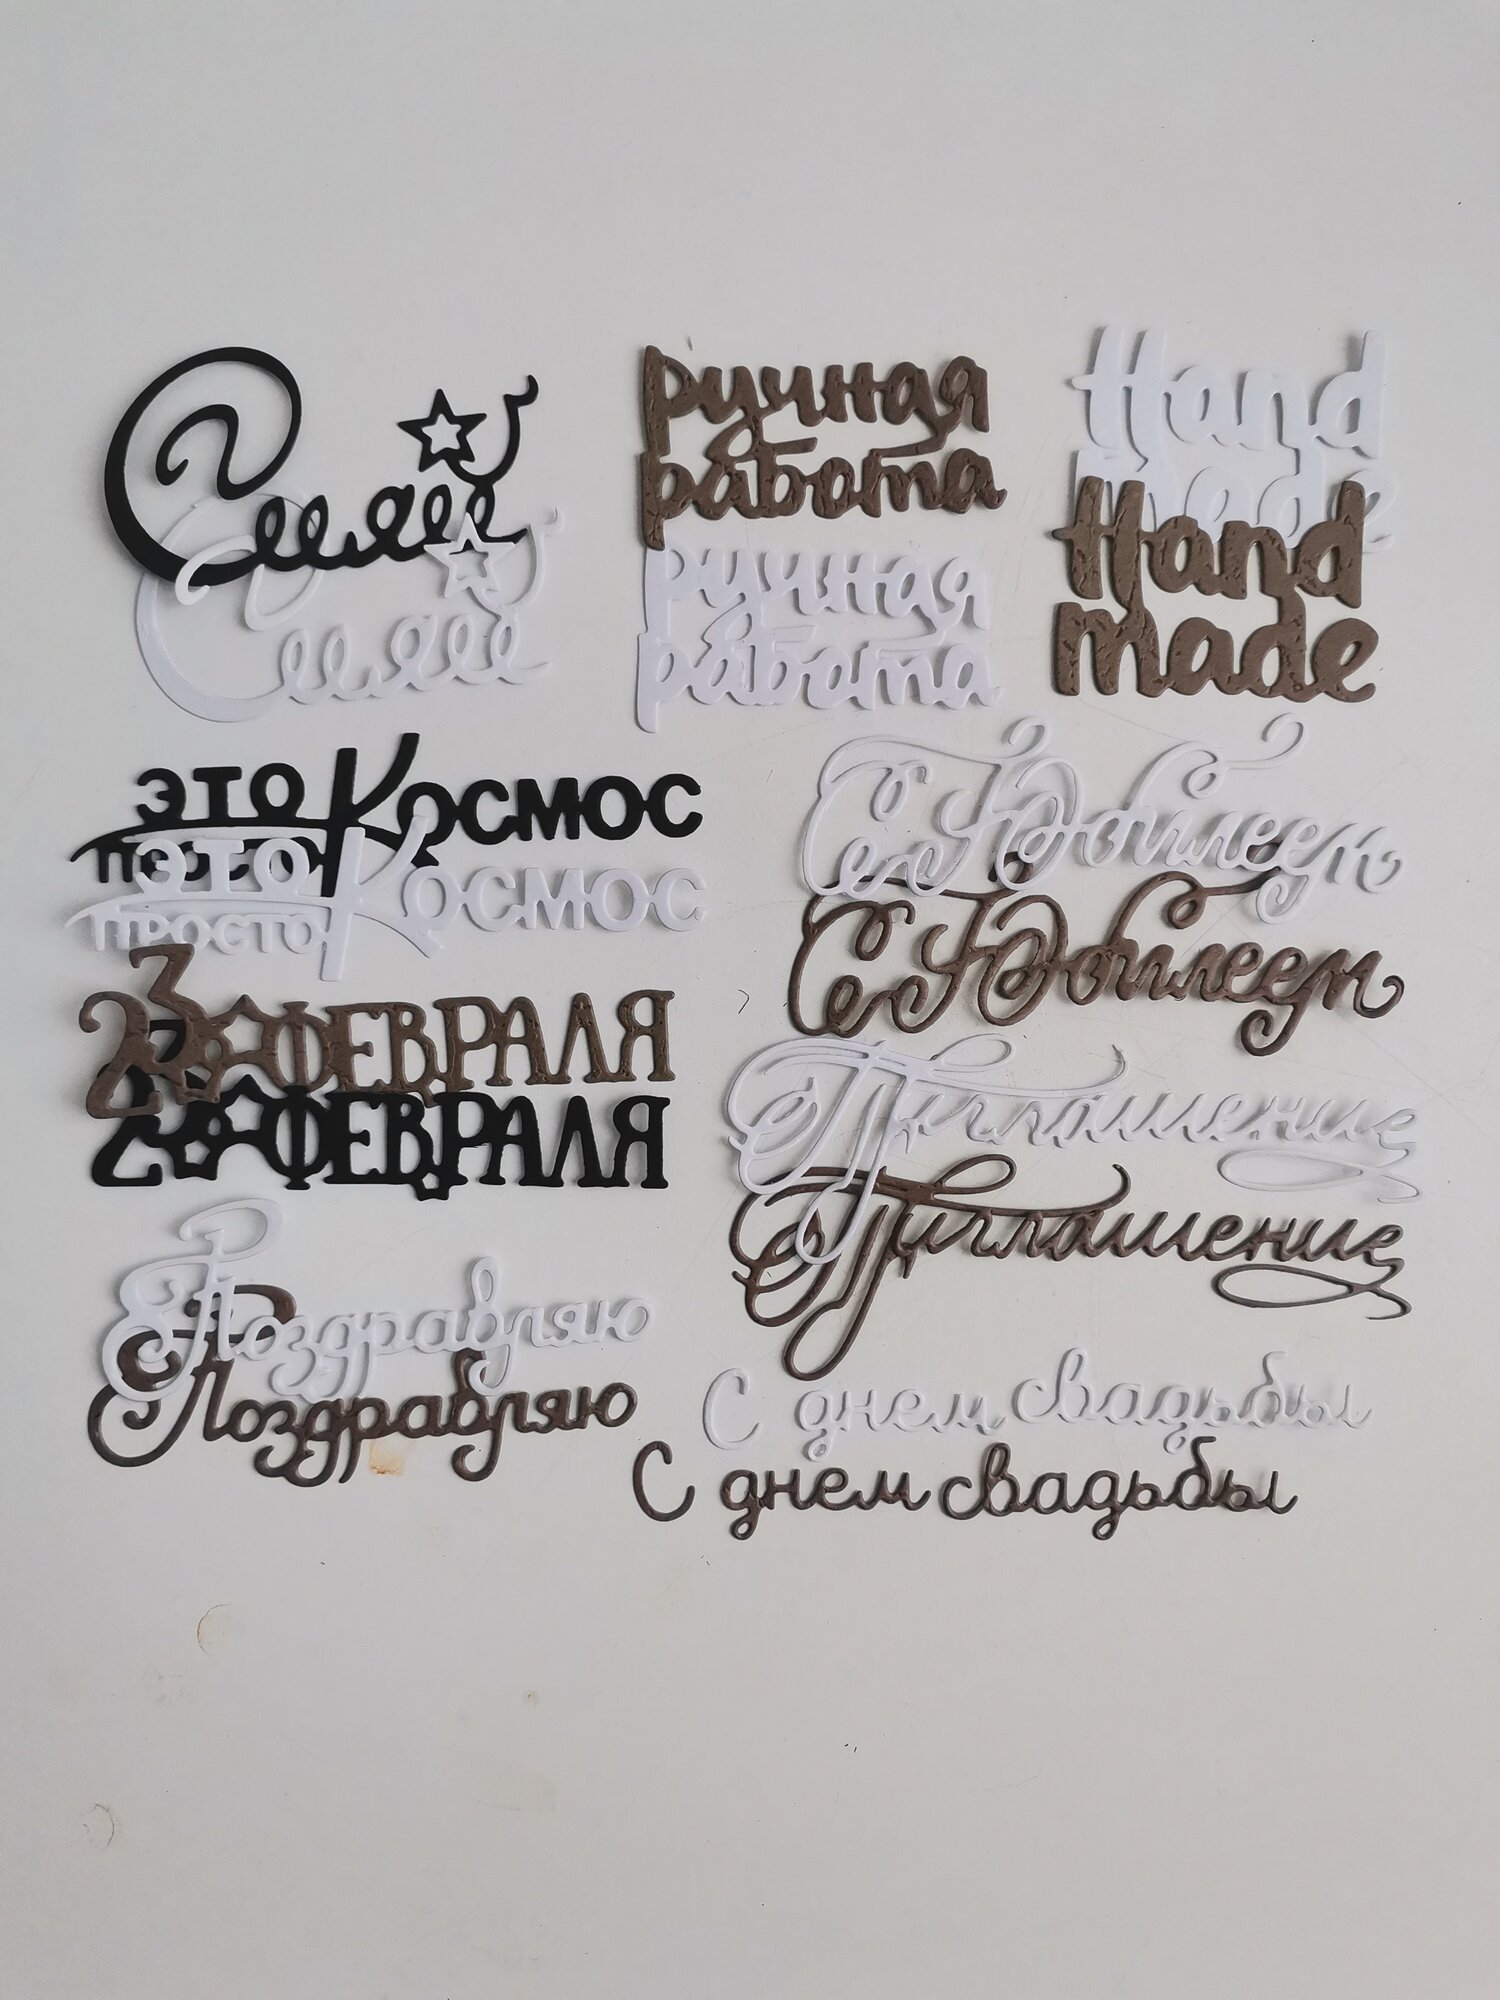 Сияй
Сияй
ручная
работа
ручная
работа
Hand
made
Hand
made
это Космос
просто
это Космос
просто
23 ФЕВРАЛЯ
23 ФЕВРАЛЯ
Поздравляю
Поздравляю
С Юбилеем
С Юбилеем
Приглашение
Приглашение
С днем свадьбы
С днем свадьбы